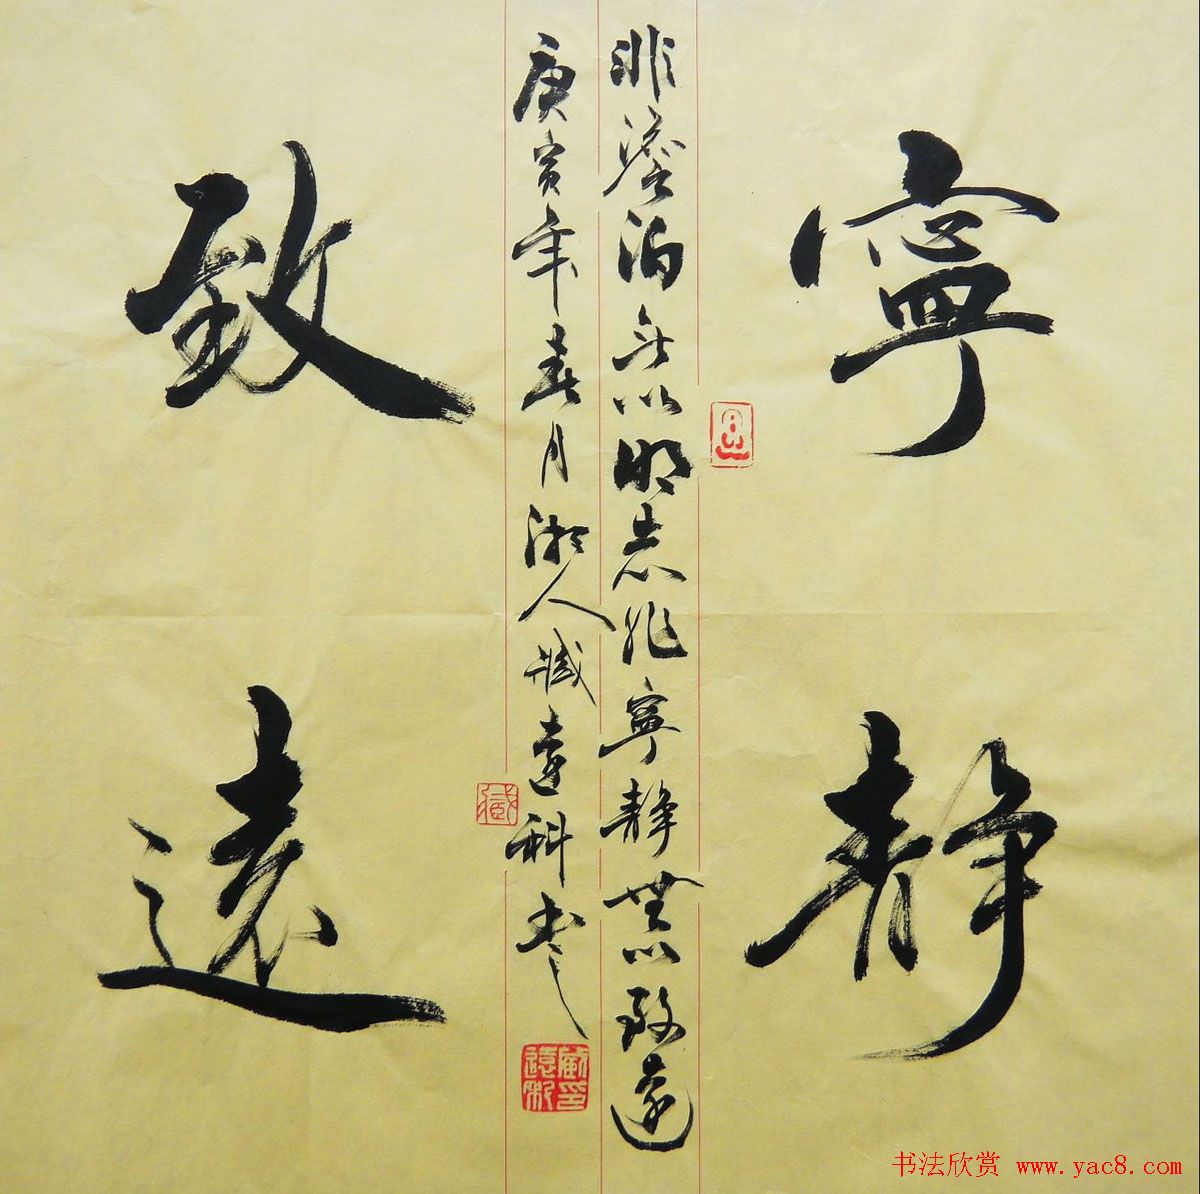 寧静
致遠
非澹泊無以明志非寧静無以致遠
庚寅年春月湘人臧遠科書
臧
臧印遠科
书法欣赏 www.yac8.com